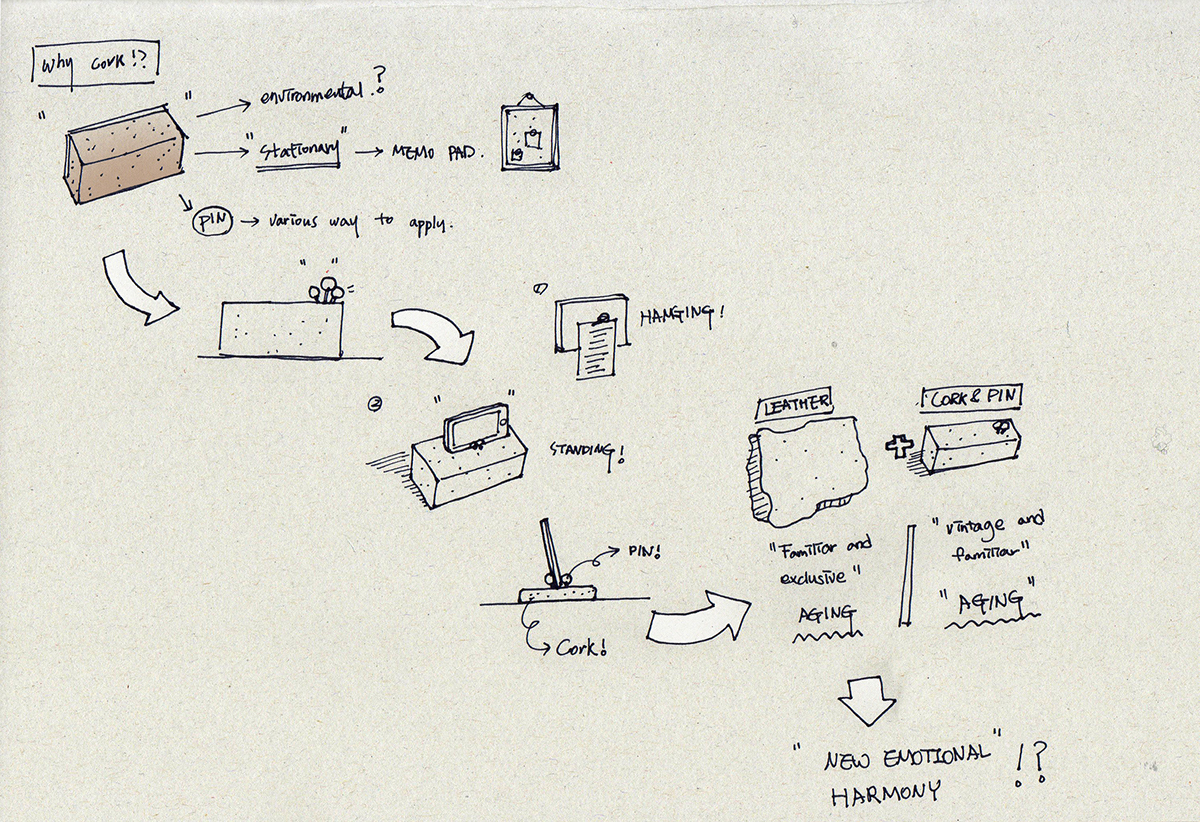 why cork!?
" "
environmental.?
"stationary" → MEMO PAD.
PIN → various way to apply.
" "
① HANGING!
② " "
STANDING!
PIN!
Cork!
LEATHER
CORK & PIN
"Familiar and
exclusive"
AGING
"vintage and
familiar"
"AGING"
"NEW EMOTIONAL" !?
HARMONY